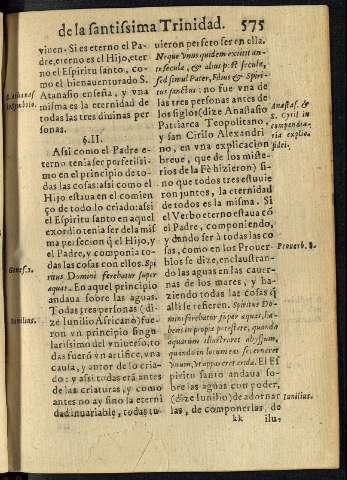 de la santissima Trinidad. 575
uinen. Si es eterno el Pa-
dre, eterno es el Hijo, eter
no el Espiritu santo, co-
mo el bienauenturado S.
Atanasio enseña, y vna
misma es la eternidad de
todas las tres diuinas per
sonas.
§. II.
Assi como el Padre e-
terno tenia ser perfetissi-
mo en el principio de to-
das las cosas: assi como el
Hijo estaua en el comien
ço de todo lo criado: assi
el Espiritu santo en aquel
exordio tenia ser de la mis
ma perfeccion que el Hijo, y
el Padre, y componia to-
das las cosas con ellos. Spi
ritus Domini ferebatur super
aquas. En aquel principio
andaua sobre las aguas.
Todas tres personas (di
ze Iunilio Africano) fuero
vn vn principio singu
larissimo del vniuerso, to
das fuerõ vn artifice, vna
causa, y autor de lo cria-
do: y assi todas erã antes
de las criaturas, y como
antes no ay sino la eterni
dad inuariable, todas tu
uieron perfeto ser en ella.
Neque vnus quidem extitit an-
te secula, & alius post secula,
sed simul Pater, Filius & Spiri-
tus sanctus: no fue vna de
las tres personas antes de
los siglos (dize Anastasio
Patriarca Teopolitano,
y san Cirilo Alexandri
no, en vna explicacion
breue, que de los miste-
rios de la Fè hizieron) si-
no que todos tres estuuie
ron juntos, la eternidad
de todos es la misma. Si
el Verbo eterno estaua cõ
el Padre, componiendo,
y dando ser à todas las co
sas, como en los Prouer-
bios se dize, enclaustran-
do las aguas en las cauer-
nas de los mares, y ha-
ziendo todas las cosas que
alli se refieren. Spiritus Do-
mini ferebatur super aquas, ha-
bens in propria potestate, quando
aquarum illustraret abyssum,
quando in locum secerneret
vnum, vt appareret arida. El Es
piritu santo andaua so-
bre las aguas con poder,
(dize Iunilio) de adornar
las, de componerlas, de
kk ilu-
S. Athanas.
in Symbolo.
Genes. 1.
Iunilius.
Anastas. &
S. Cyril. in
compendia-
ria explic.
fidei.
Prouerb. 8.
Iunilius.